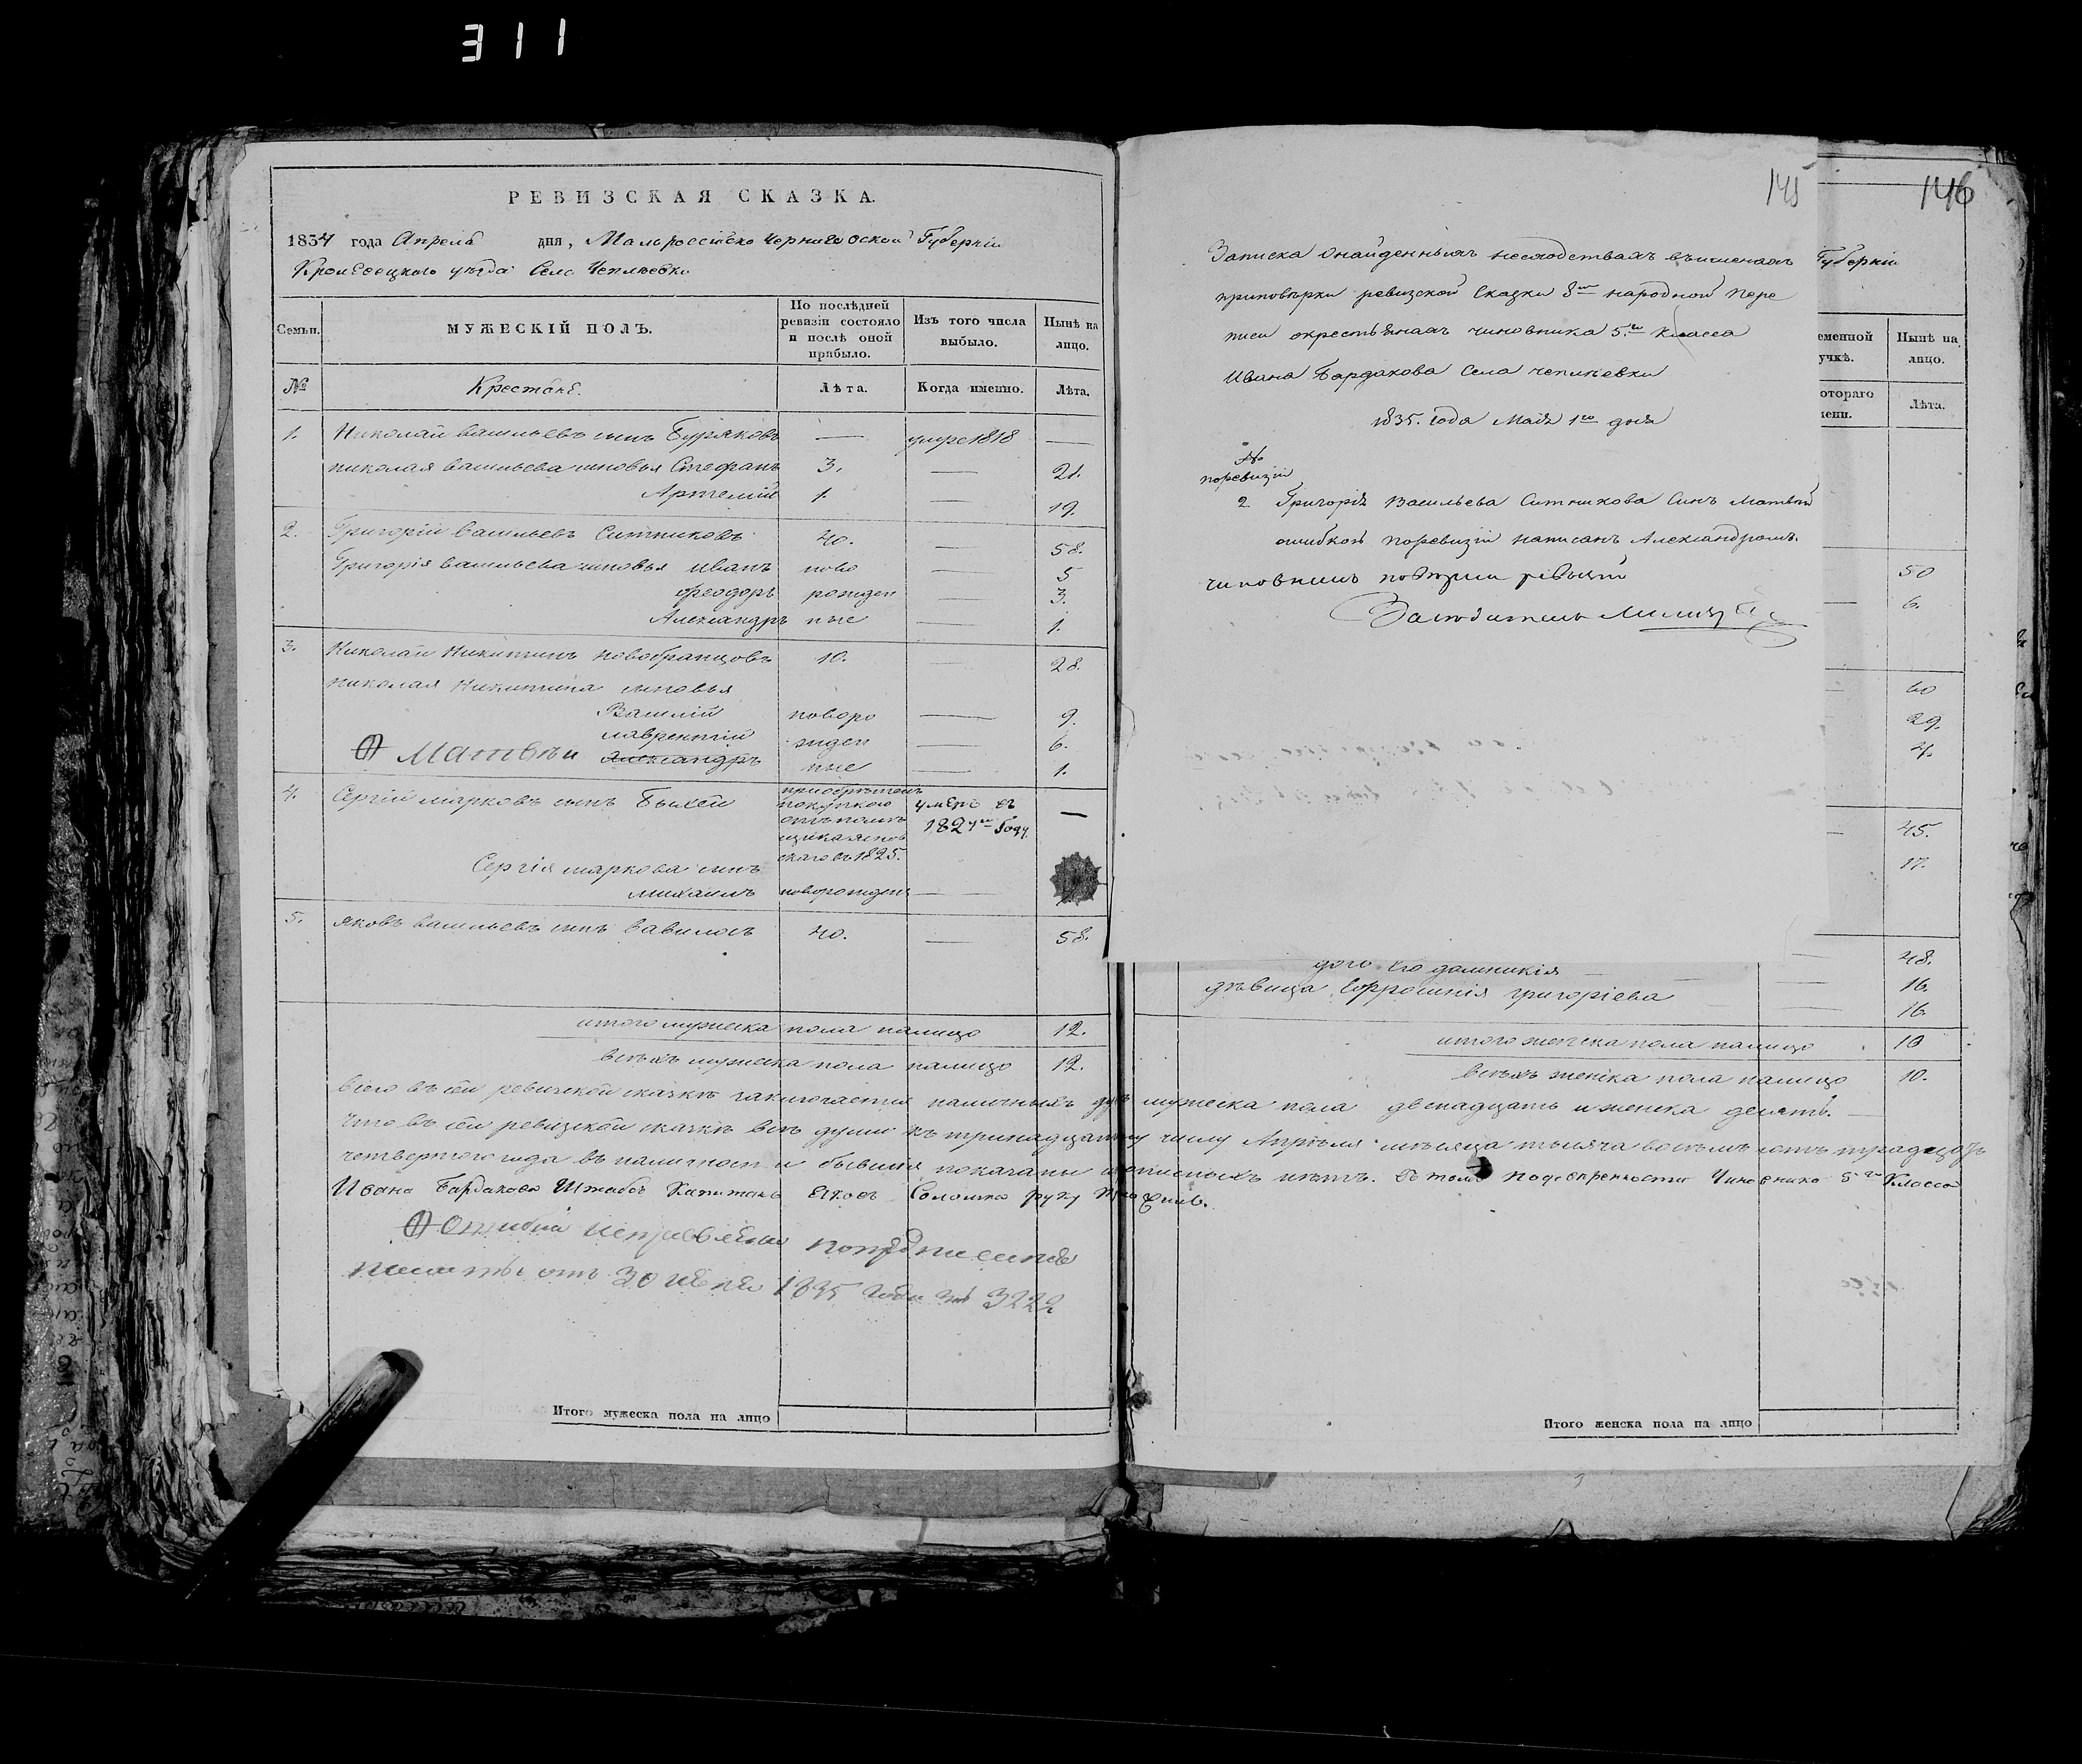 311
РЕВИЗСКАЯ СКАЗКА.
1834 года Апреля дня, Малоросійско Черниговской Губерніи
Кролевецкого уѣзда Села Чепліевки
Семьи.
МУЖЕСКІЙ ПОЛЪ.
По послѣдней ревизіи состояло и послѣ оной прибыло.
Изъ того числа выбыло.
Нынѣ на лицо.
№
Крестьяне.
Лѣта.
Когда именно.
Лѣта.
1. Николай васильевъ сынъ Буряковъ — умре 1818 —
николая васильева сыновья Стефанъ 3. — 21.
Артемій 1. — 19.
2. Григорій васильевъ Ситниковъ 40. — 58.
Григорія васильева сыновья иванъ ново — 5
феодоръ рожден — 3.
Александръ ные — 1.
3. Николай Никитинъ новобранцовъ 10. — 28.
николая Никитина сыновья
Василій новоро — 9.
лаврентій жден — 6.
Матвѣй Александръ ные — 1.
4. Сергій марковъ сынъ приобрѣтенъ покупкою умеръ въ 1827м Году —
скаго въ 1825.
Сергія маркова сынъ
михаилъ новорожден —
5. яковъ васильевъ сынъ вавилосъ 40. — 58.
итого мужеска пола налицо 12.
всѣхъ мужеска пола налицо 12.
всего въ сей ревизской сказкѣ заключается наличныхъ душъ мужеска пола двенадцать и женска десять.
Что въ сей ревизской сказкѣ всѣ души къ тринадцатому числу Апрѣля мѣсяца тысяча восемь сотъ тридцать
четвертого года въ наличности бывшія показаны и прописныхъ нѣтъ. Въ томъ по доверенности Чиновника 5го Класса
Ивана Бардакова Штабсъ Капитанъ Яковъ Соломка руку приложилъ.
Ошибка исправлена по предписанію
палаты отъ 30 1835 года за № 3222
Итого мужеска пола на лицо
145
Записка о найденныхъ несходствахъ въ именахъ
при повѣрки ревизской сказки 8й народной пере
писи о крестьянахъ чиновника 5го класса
Ивана Бардакова села чепліевки
1835. года Майя 1го дня
№
по ревизіи
2 Григорія Васильева Ситникова Синъ Матвѣй
ошибкою по ревизіи написанъ Александромъ.
146
Губерніи
еменной
учкѣ.
Нынѣ на лицо.
отораго
ени.
Лѣта.
50
6.
60
29.
4.
45.
17.
48.
дочь его домникія 16.
дѣвица Ефросинія григоріева 16.
итого женска пола налицо 10
всѣхъ женска пола налицо 10.
Итого женска пола на лицо